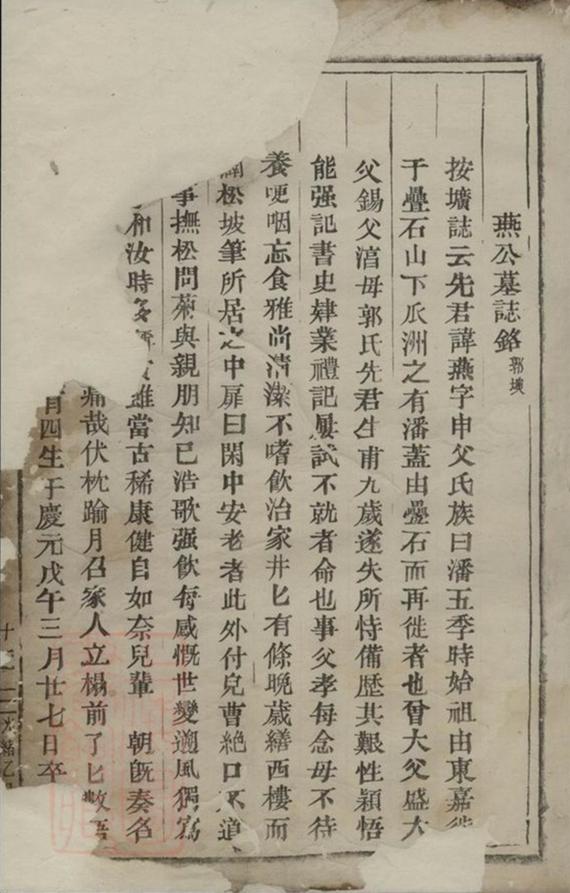 燕公墓誌銘 郭墺
按壙誌云先君諱燕字申父氏族曰潘五季時始祖由東嘉徙
于疊石山下瓜洲之有潘蓋由疊石而再徙者也曾大父盛大
父錫父涫母郭氏先君生甫九歲遂失所恃備歷其艱性穎悟
能强記書史肄業禮記屢試不就者命也事父孝每念母不待
養哽咽忘食雅尚清潔不嗜飲治家井匕有條晚歲繕西樓而
松坡筆所居之中扉曰閑中安老者此外付兒曹絶口不道
事撫松問菊與親朋知已浩歌强飲每感慨世變遡風獨寫
和汝時 雖當古稀康健自如奈兒輩 朝旣奏名
痛哉伏枕踰月召家人立榻前了匕數語
月四生于慶元戊午三月廿七日卒